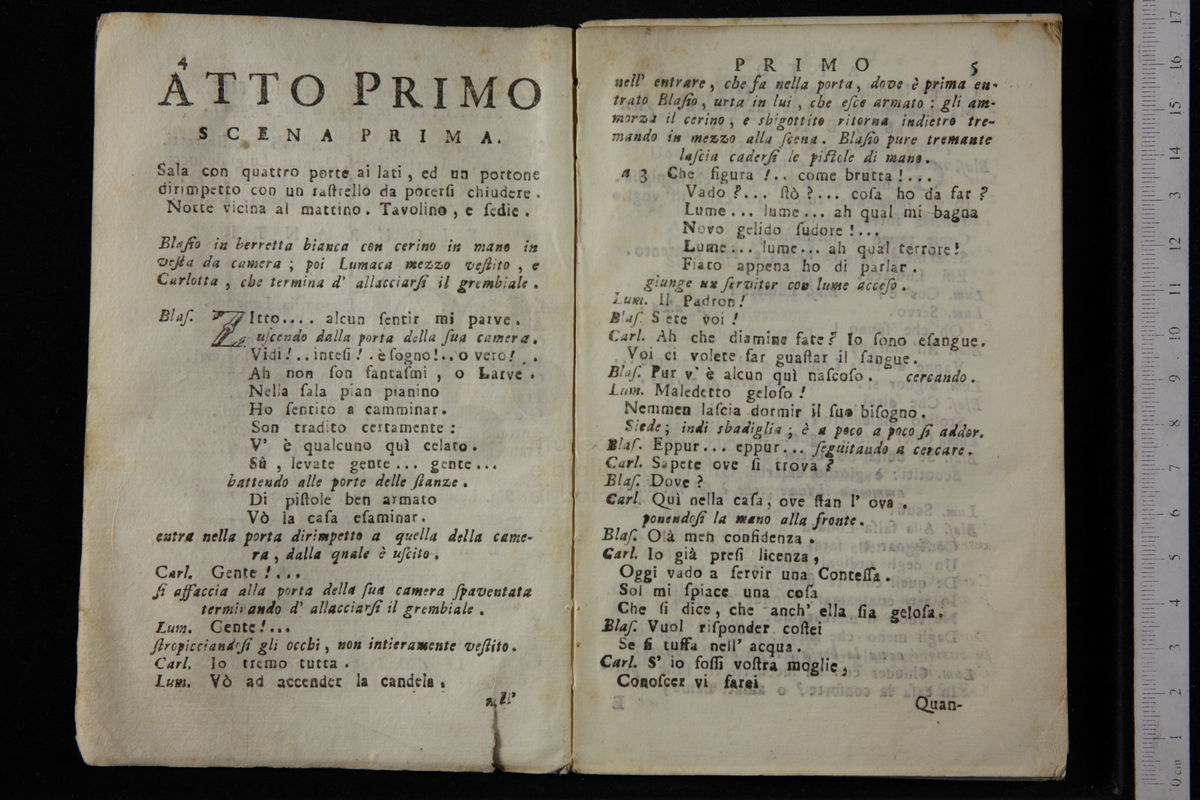 4
ATTO PRIMO
SCENA PRIMA.
Sala con quattro porte ai lati, ed un portone
dirimpetto con un raſtrello da poterſi chiudere.
Notte vicina al mattino. Tavolino, e ſedie.
Blaſio in berretta bianca con cerino in mano in
veſta da camera; poi Lumaca mezzo veſtito, e
Carlotta, che termina d' allacciarſi il grembiale.
Blaſ. ZItto.... alcun ſentir mi parve.
uſcendo dalla porta della ſua camera.
Vidi!.. inteſi!. è ſogno!.. o vero! .
Ah non ſon fantaſmi, o Larve.
Nella ſala pian pianino
Ho ſentito a camminar.
Son tradito certamente:
V' è qualcuno quì celato.
Sù, levate gente... gente...
battendo alle porte delle ſtanze.
Di piſtole ben armato
Vò la caſa eſaminar.
entra nella porta dirimpetto a quella della came-
ra, dalla quale è uſcito.
Carl. Gente!...
ſi affaccia alla porta della ſua camera ſpaventata
terminando d' allacciarſi il grembiale.
Lum. Gente!...
ſtropicciandoſi gli occhi, non intieramente veſtito.
Carl. Io tremo tutta.
Lum. Vò ad accender la candela.
nell'
PRIMO 5
nell' entrare, che fa nella porta, dove è prima en-
trato Blaſio, urta in lui, che eſce armato: gli am-
morza il cerino, e sbigottito ritorna indietro tre-
mando in mezzo alla ſcena. Blaſio pure tremante
laſcia caderſi le piſtole di mano.
a 3 Che figura!.. come brutta!...
Vado?... ſtò?... coſa ho da far?
Lume... lume... ah qual mi bagna
Novo gelido ſudore!...
Lume... lume... ah qual terrore!
Fiato appena ho di parlar.
giunge un ſervitor con lume acceſo.
Lum. Il Padron!
Blaſ. Siete voi!
Carl. Ah che diamine fate? Io ſono eſangue.
Voi ci volete far guaſtar il ſangue.
Blaſ. Pur v' è alcun quì naſcoſo. cercando.
Lum. Maledetto geloſo!
Nemmen laſcia dormir il ſuo biſogno.
Siede; indi sbadiglia; è a poco a poco ſi addor.
Blaſ. Eppur... eppur... ſeguitando a cercare.
Carl. Sapete ove ſi trova?
Blaſ. Dove?
Carl. Quì nella caſa, ove ſtan l' ova.
ponendoſi la mano alla fronte.
Blaſ. Olà men confidenza.
Carl. Io già preſi licenza,
Oggi vado a ſervir una Conteſſa.
Sol mi ſpiace una coſa
Che ſi dice, che anch' ella ſia geloſa.
Blaſ. Vuol riſponder coſtei
Se ſi tuffa nell' acqua.
Carl. S' io foſſi voſtra moglie,
Conoſcer vi farei
Quan-